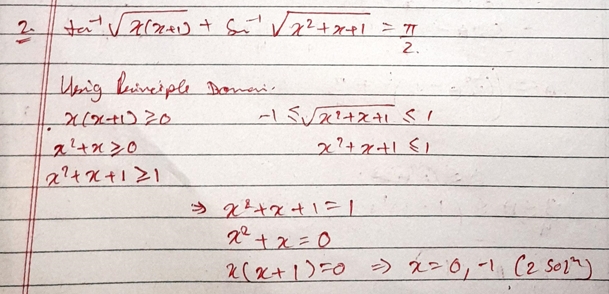 2. tan⁻¹ √x(x+1) + Sin⁻¹ √x²+x+1 = π/2.
Using Principle Domain.
x(x+1) ≥ 0    -1 ≤ √x²+x+1 ≤ 1
x²+x ≥ 0    x²+x+1 ≤ 1
x²+x+1 ≥ 1
⇒ x²+x+1 = 1
x²+x = 0
x(x+1)=0 ⇒ x = 0, -1 (2 Solⁿ)